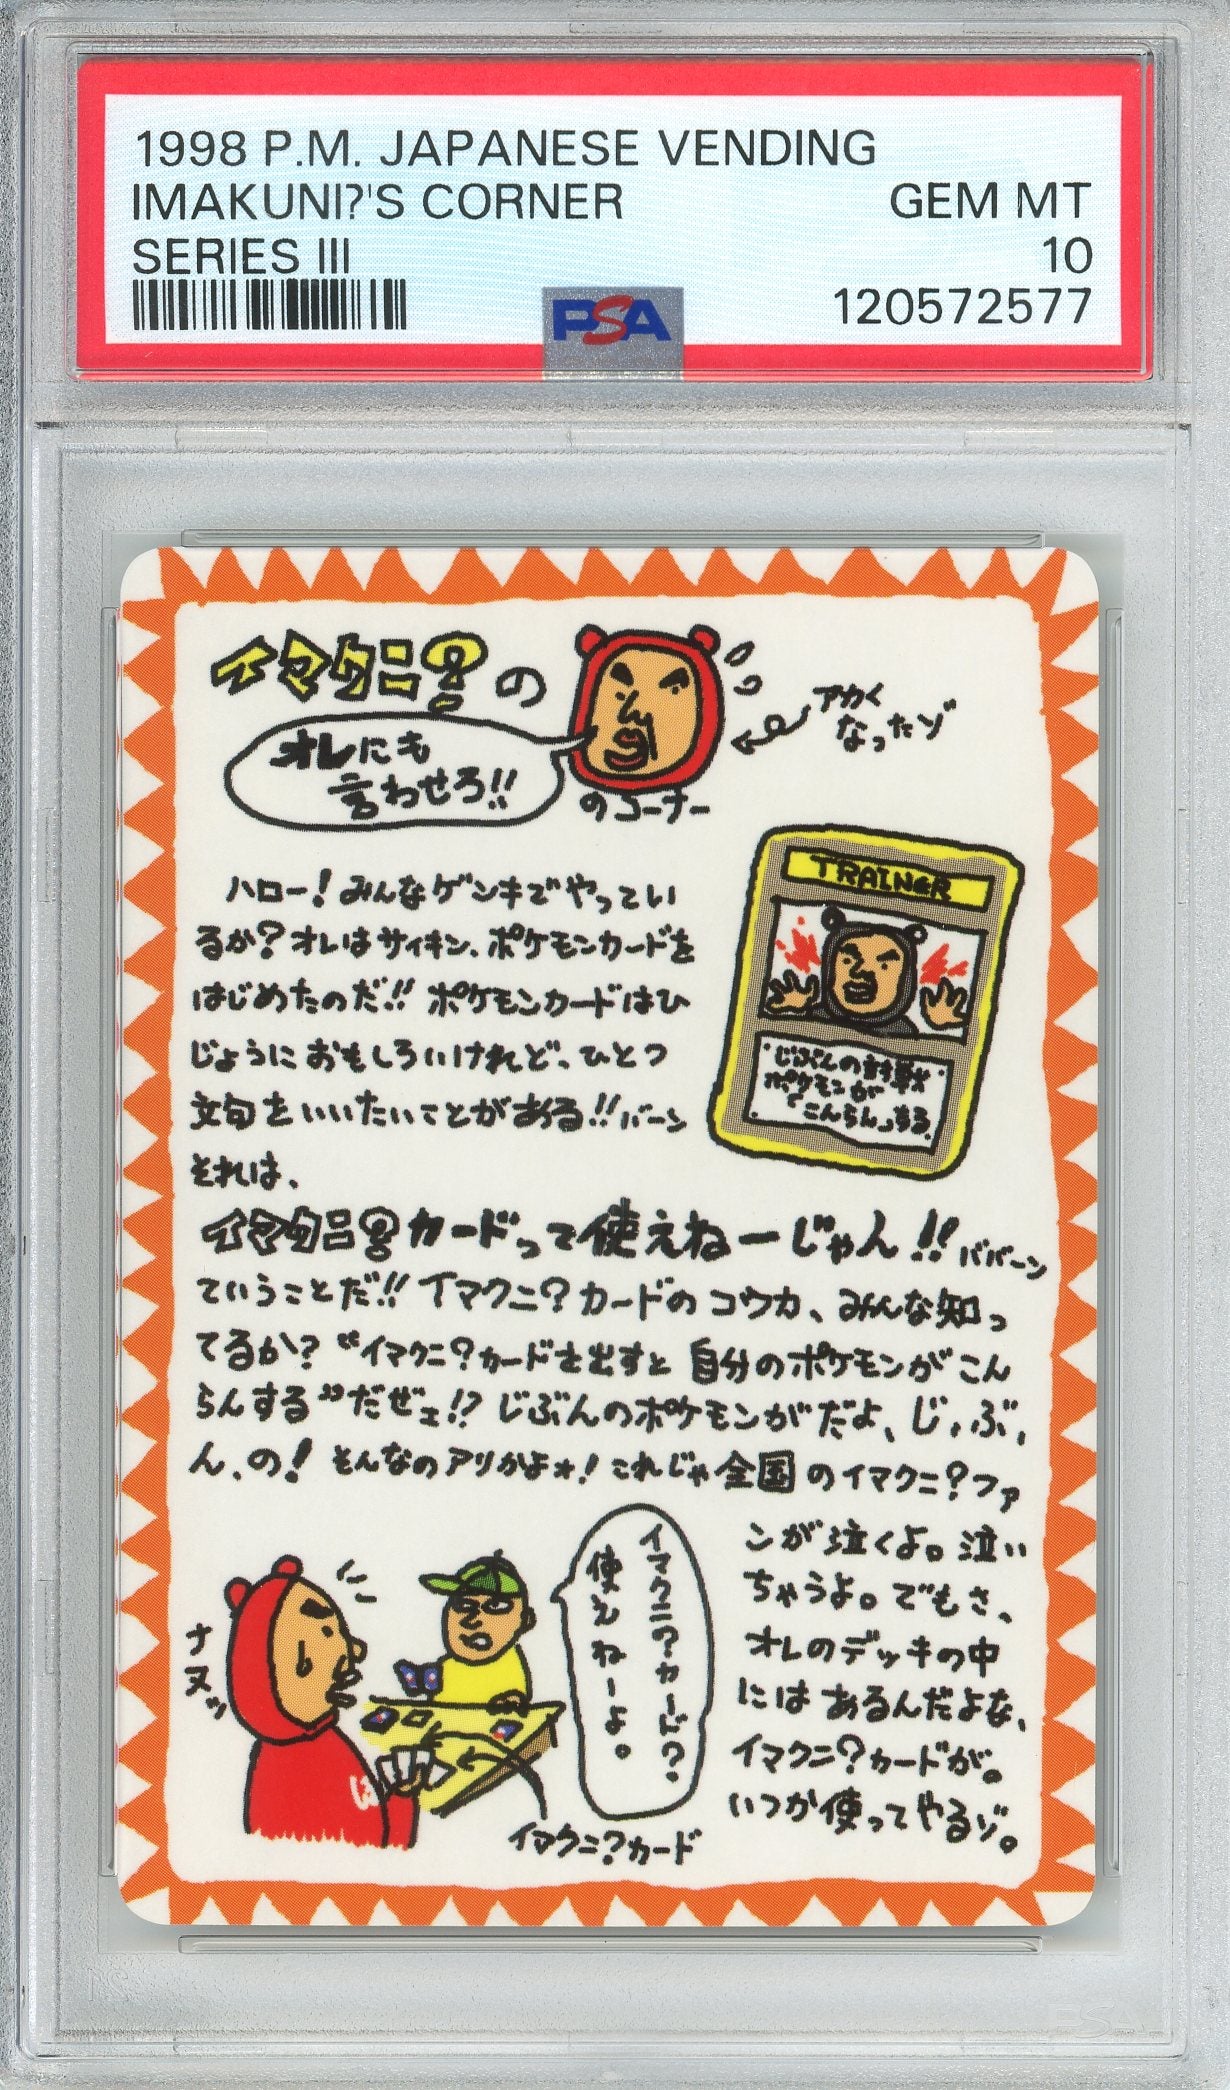 1998 P.M. JAPANESE VENDING
IMAKUNI?'S CORNER
GEM MT
SERIES III
10
120572577
PSA
イマクニ?の
オレにも
言わせろ!!
のコーナー
アカく
なったゾ
ハロー!みんなゲンキでやってい
るか?オレはサイキン、ポケモンカードを
はじめたのだ!!ポケモンカードはひ
じょうにおもしろいけれど、ひとつ
文句をいいたいことがある!!バーン
それは、
TRAINER
・じぶんの対戦
ポケモンが
「こんらん」する。
イマクニ?カードって使えねーじゃん!!ババーン
ていうことだ!!イマクニ?カードのコウカ、みんな知っ
てるか?“イマクニ?カードを出すと自分のポケモンがこん
らんする”だぜェ!?じぶんのポケモンがだよ、じ、ぶ、
ん、の!そんなのアリかよォ!これじゃ全国のイマクニ?ファ
ンが泣くよ。泣い
ちゃうよ。でもさ、
オレのデッキの中
にはあるんだよな、
イマクニ?カードが。
いつか使ってやるゾ。
ナヌッ
イマクニ?カード?
使えねーよ。
イマクニ?カード